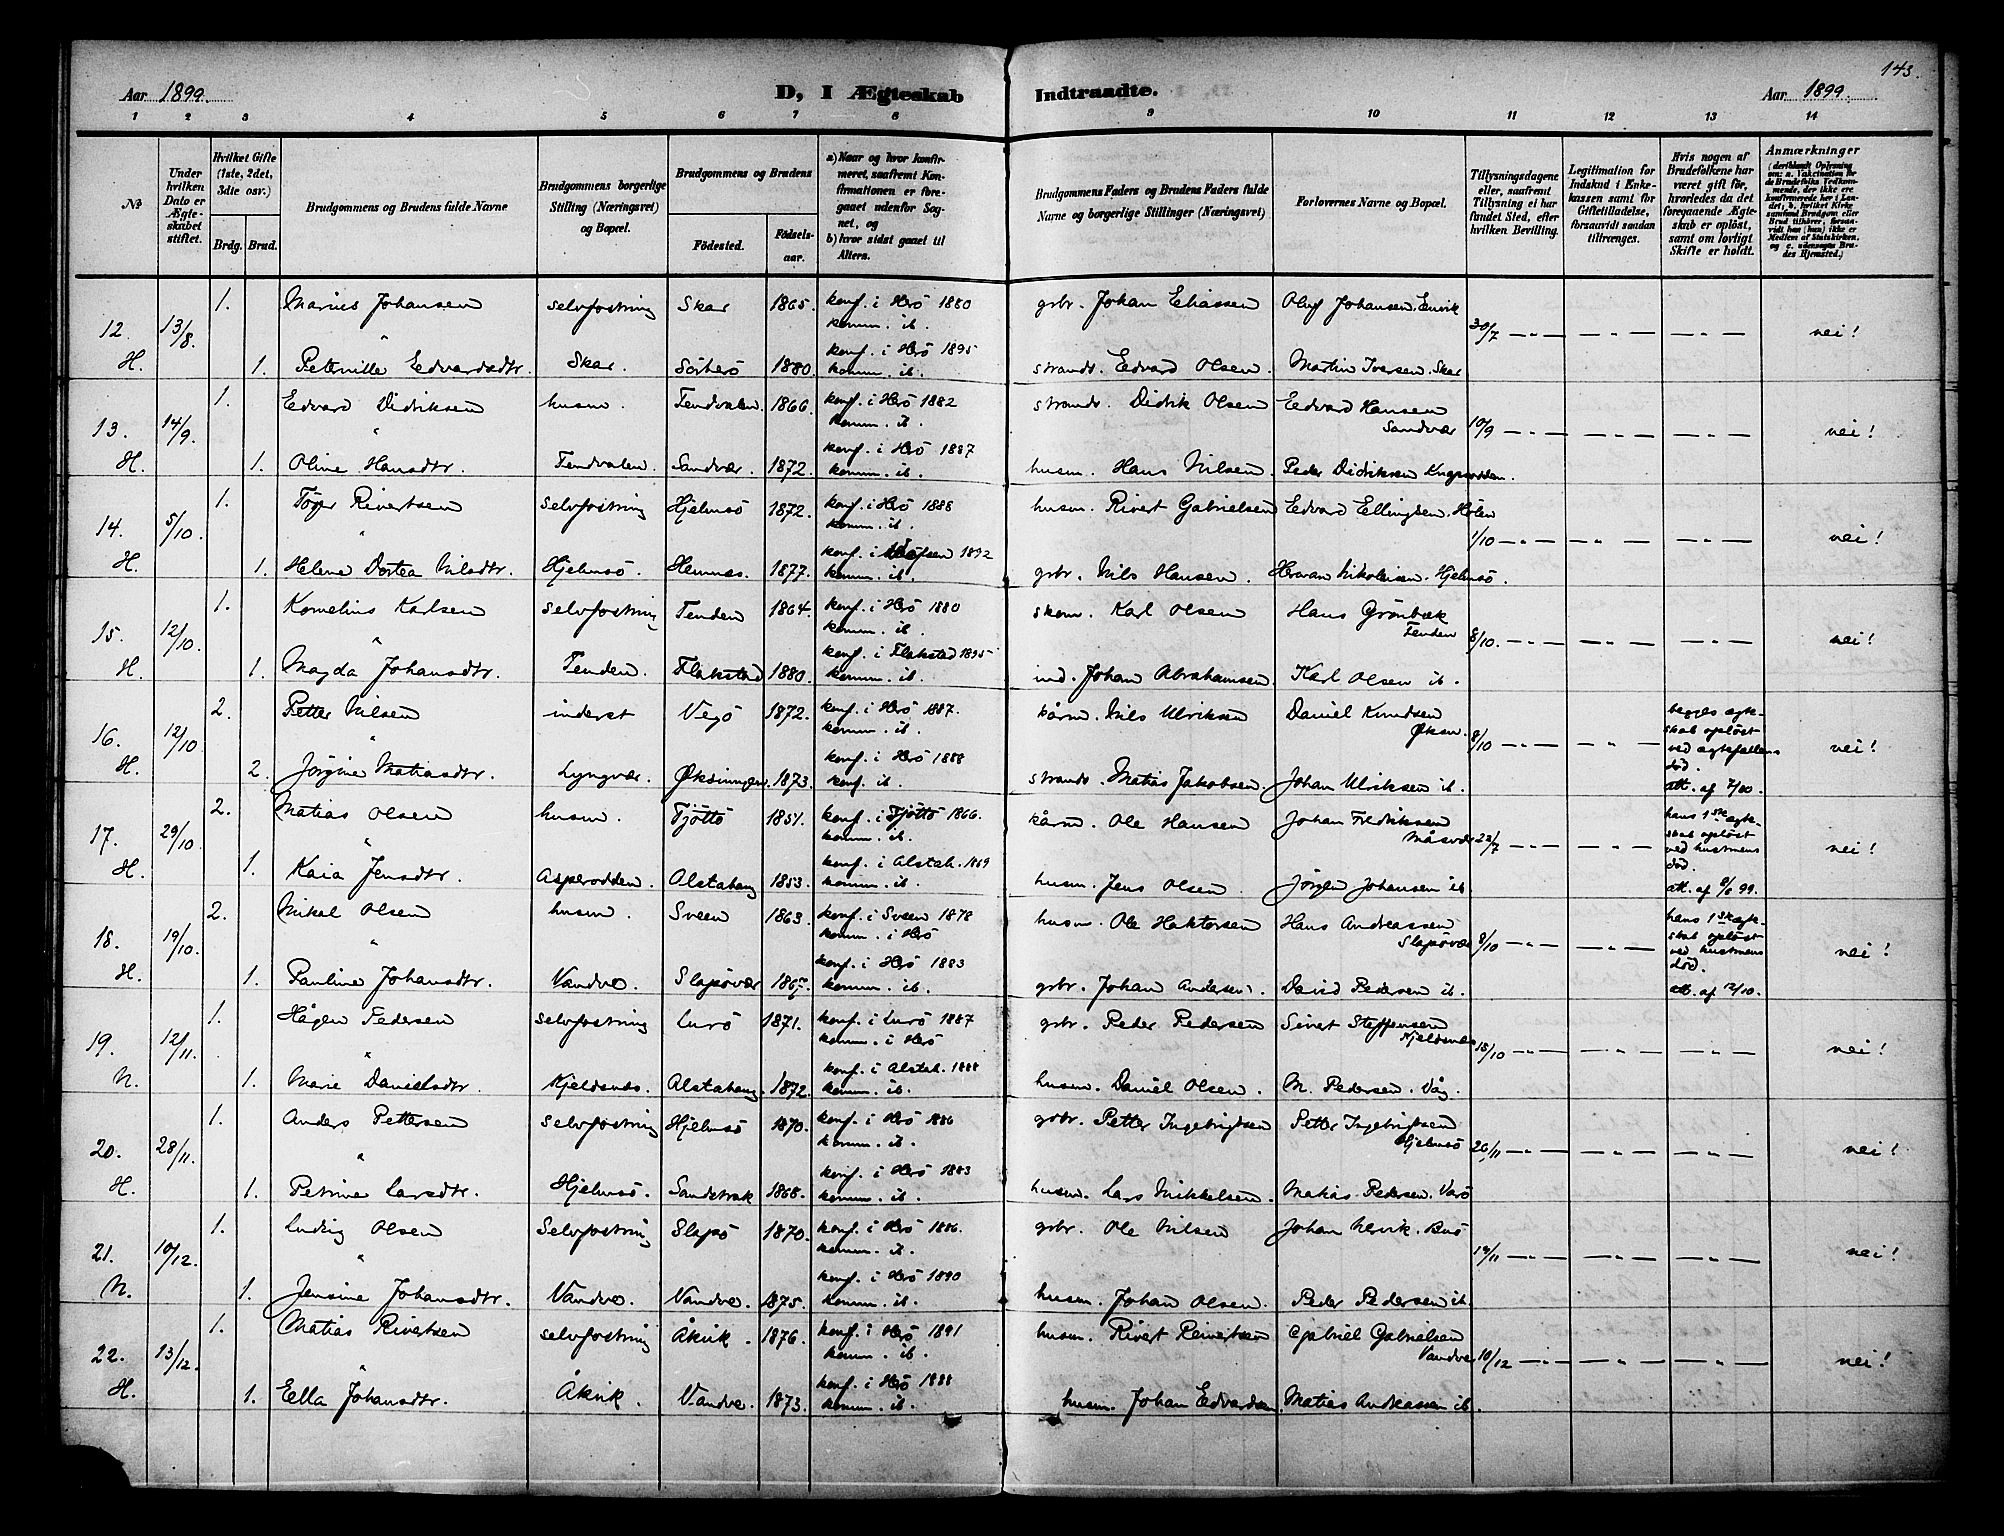 143.
Aar 1899. D, I Ægteskab Indtraadte. Aar 1899.
1 2 3 4 5 6 7 8 9 10 11 12 13 14
№
Under hvilken Dato er Ægteskabet stiftet.
Hvilket Gifte (1ste, 2det, 3die osv.)
Brdg. Brud.
Brudgommens og Brudens fulde Navne
Brudgommens borgerlige Stilling (Næringsvei) og Bopæl.
Brudgommens og Brudens
Födested. Födselsaar.
a) Naar og hvor konfirmeret, saafremt Konfirmationen er foregaaet udenfor Sognet, og
b) hvor sidst gaaet til Alters.
Brudgommens Faders og Brudens Faders fulde Navne og borgerlige Stillinger (Næringsvei)
Forlovernes Navne og Bopæl.
Tillysningsdagene eller, saafremt Tillysning ei har fundet Sted, efter hvilken Bevilling.
Legitimation for Indskud i Enkekassen samt for Giftetilladelse, forsaavidt saadan tiltrænges.
Hvis nogen af Brudefolkene har været gift för, hvorledes da det foregaaende Ægteskab er oplöst, samt om lovligt Skifte er holdt.
Anmærkninger
12. H. 13/8. 1. Marius Johansen selvfostring Skar 1865. konf. i Herö 1880 komm. ib. grbr. Johan Eliassen Oluf Johansen, Envik 30/7 nei!
1. Peternille Edvardsdtr. Skar. Sörherö 1880. konf. i Herö 1895 komm. ib. strands. Edvard Olsen Martin Iversen. Skar
13. H. 14/9. 1. Edvard Didriksen husm. Tendvalen. 1866. konf. i Herö 1882 komm. ib. strands. Didrik Olsen Edvard Hansen Sandvær 10/9 nei!
1. Oline Hansdtr. Tendvalen. Sandvær. 1872. konf. i Herö 1887 komm. ib. husm. Hans Nilsen. Peder Didriksen
14. H. 5/10. 1. Töger Rivertsen selvfostring Hjelmsö 1872. konf. i Herö 1888 komm. ib. husm. Rivert Gabrielsen Edvard Ellingsen. 1/10 nei!
1. Helene Dortea Nilsdtr. Hjelmsö. Hemnes. 1877. konf. i 1892 komm. ib. grbr. Nils Hansen. Herman Nikolaisen. Hjelmsö.
15. H. 12/10. 1. Kornelius Karlsen selvfostring Tenden 1864. konf. i Herö 1880 komm. ib. skom. Karl Olsen Hans Grönbæk Tenden 8/10. nei!
1. Magda Johansdtr. Tenden. Flakstad 1880. konf. i Flakstad 1895 komm. ib. ind. Johan Abrahamsen Karl Olsen ib.
16. H. 12/10 2. Petter Nilsen inderst Vegö 1872. konf. i Herö 1887. komm. ib. kårm. Nils Ulriksen Daniel Knudsen Øksn. 8/10 begges ægteskab oplöst ved ægtefællens död. att. af 7/10. nei!
2. Jörgine Matiasdtr. Lyngvær. Øksningen 1873. konf. i Herö 1888 konf. ib. strands. Matias Jakobsen. Johan Ulriksen ib.
17. H. 29/10 2. Matias Olsen husm. Tjöttö 1851. konf. i Tjöttö 1866. komm. ib. kårm. Ole Hansen Johan Fredriksen Måsvær 23/7 hans 1ste ægteskab oplöst ved hustruens död. att. af 9/8 99. nei!
1. Kaia Jensdtr. Asperodden. Alstahaug 1853. konf. i Alstah. 1869 komm. ib. husm. Jens Olsen. Jörgen Johansen ib.
18. H. 19/10. 2. Mikal Olsen husm. Sveen 1863. konf. i Sveen 1878 komm. i Herö husm. Ole Haktorsen Hans Andreassen Slapövær 8/10 hans 1ste ægteskab oplöst ved hustruens död. att. af 12/10. nei!
1. Pauline Johansdtr. Vandve. Slapövær 1867. konf. i Herö 1883 komm. ib. grbr. Johan Andersen. David Pedersen ib.
19. N. 12/11. 1. Hågen Pedersen selvfostring Lurö 1871. konf. i Lurö 1887 komm. i Herö grbr. Peder Pedersen Sivert Steffensen Kjeldsnes 15/10 nei!
1. Marie Danielsdtr. Kjeldsnes. Alstahaug 1872. konf. i Alstah. 1888 komm. ib. husm. Daniel Olsen. M. Pedersen. Våg.
20. H. 28/11. 1. Anders Pettersen selvfostring Hjelmsö 1870. konf. i Herö 1886 komm. ib. grbr. Petter Ingebrigtsen Petter Ingebrigtsen Hjelmsö 26/11 nei!
1. Petrine Larsdtr. Hjelmsö. Sandstrak 1868. konf. i Herö 1883 komm. ib. husm. Lars Mikkelsen. Matias Pedersen. Varö
21. N. 10/12. 1. Ludvig Olsen Selvfostring Slapö 1870. konf. i Herö 1886. komm. ib. grbr. Ole Nilsen Johan Ulvik. Busö 19/11 nei!
1. Jensine Johansdtr. Vandve. Vandve. 1875. konf. i Herö 1890 komm. ib. husm. Johan Olsen. Peder Pedersen ib.
22. H. 13/12. 1. Matias Rivertsen selvfostring Åkvik. 1876. konf. i Herö 1891 komm. ib. husm. Rivert Reinertsen Gabriel Gabrielsen Vandve 10/12 nei!
1. Ella Johansdtr. Åkvik. Vandve. 1873. konf. i Herö 1888 komm. ib. husm. Johan Edvardsen. Matias Andreassen ib.